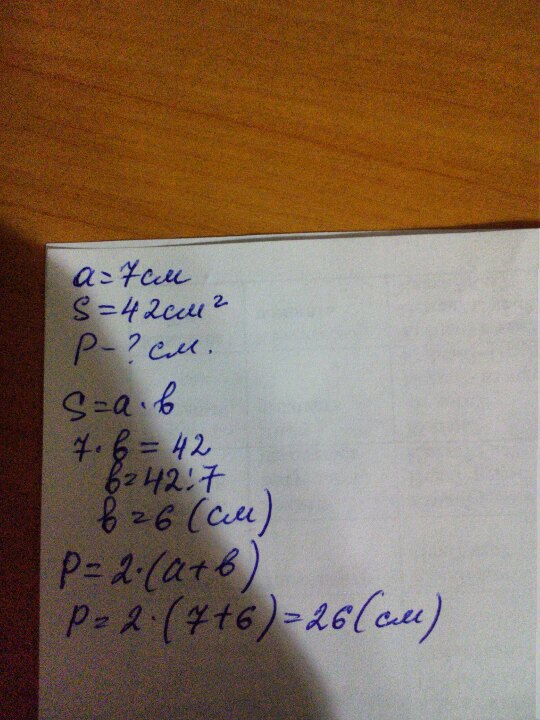 a=7см
S=42см²
P-? см.
S=a·в
7·в=42
в=42:7
в=6 (см)
P=2·(a+в)
P=2·(7+6)=26(см)